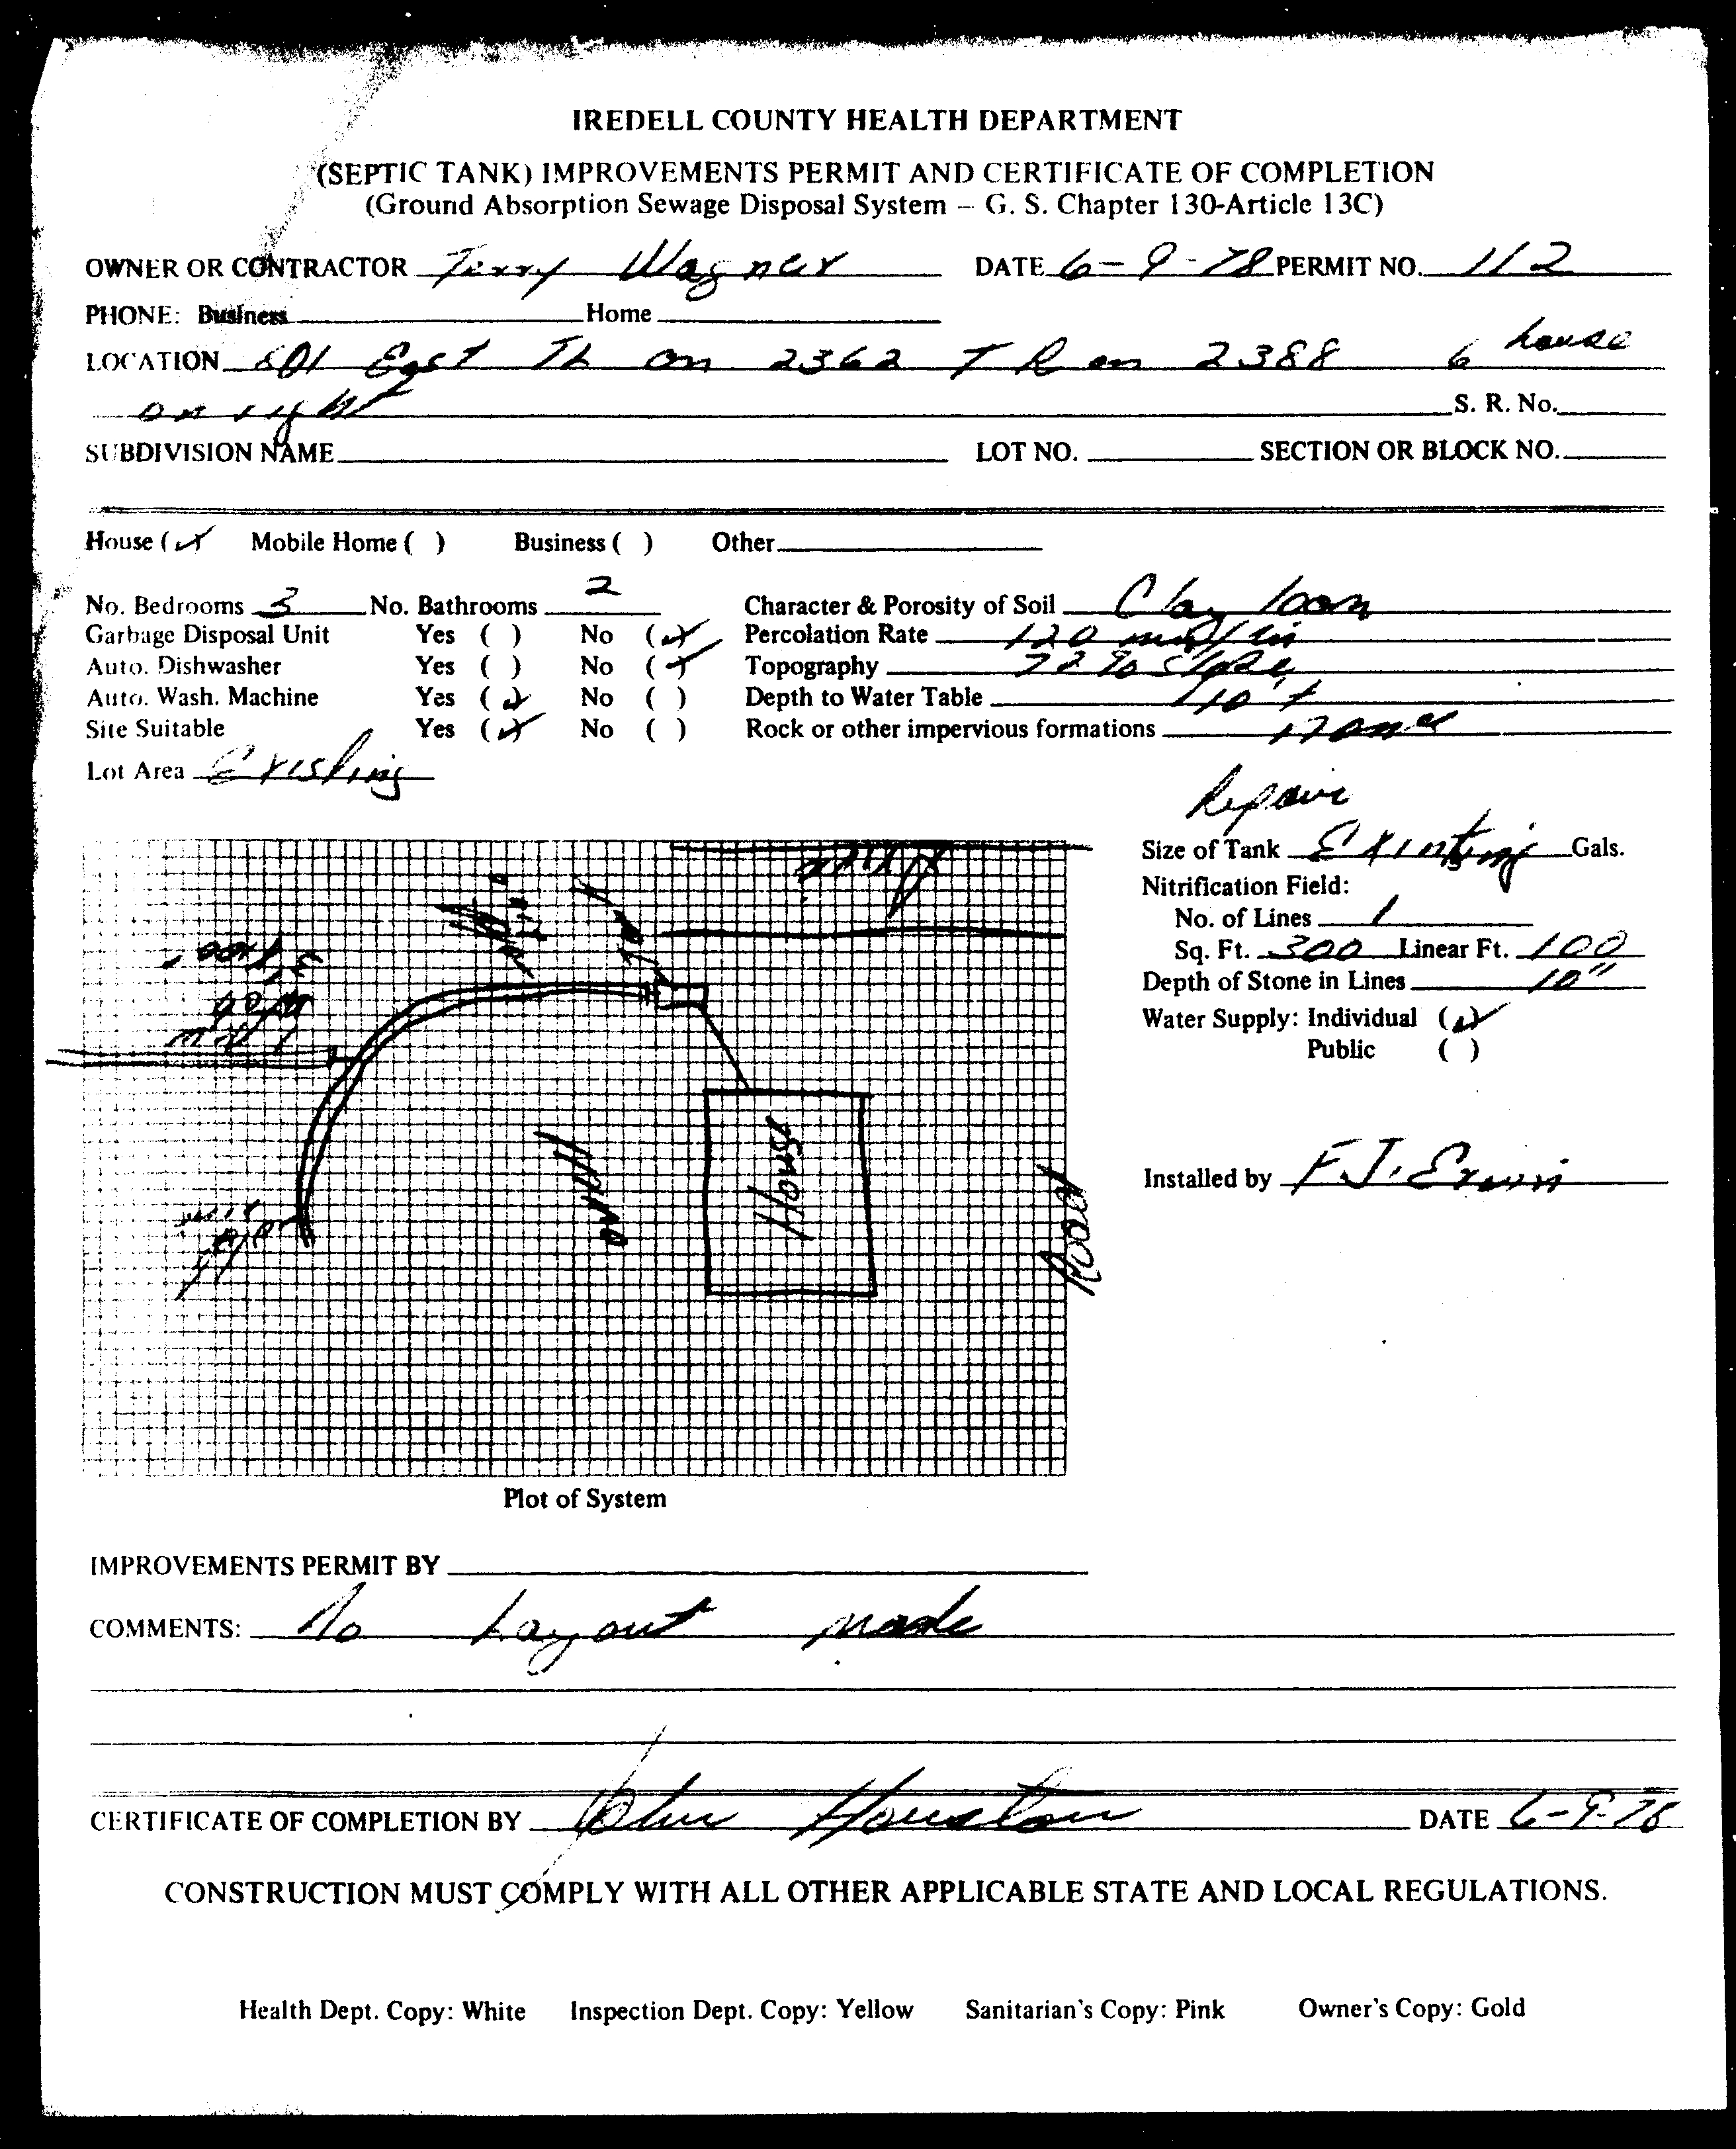 IREDELL COUNTY HEALTH DEPARTMENT
(SEPTIC TANK) IMPROVEMENTS PERMIT AND CERTIFICATE OF COMPLETION
(Ground Absorption Sewage Disposal System – G. S. Chapter 130-Article 13C)
OWNER OR CONTRACTOR Terry Wagner DATE 6-9-78 PERMIT NO. 112
PHONE: Business Home
LOCATION East TL on 2362 T R on 2388 6 house
on right S. R. No.
SUBDIVISION NAME LOT NO. SECTION OR BLOCK NO.
House (✓) Mobile Home ( ) Business ( ) Other
No. Bedrooms 3 No. Bathrooms 2 Character & Porosity of Soil Clay loam
Garbage Disposal Unit Yes ( ) No (✓) Percolation Rate 120 min/in
Auto. Dishwasher Yes ( ) No (✓) Topography % slope
Auto. Wash. Machine Yes (✓) No ( ) Depth to Water Table 10'+
Site Suitable Yes (✓) No ( ) Rock or other impervious formations none
Lot Area Existing
Repair
Size of Tank Existing Gals.
Nitrification Field:
No. of Lines 1
Sq. Ft. 300 Linear Ft. 100
Depth of Stone in Lines 10"
Water Supply: Individual (✓)
Public ( )
Drive
3' x 100'
House
Road
Installed by F.J. Erwin
Plot of System
IMPROVEMENTS PERMIT BY
COMMENTS: No Layout made
CERTIFICATE OF COMPLETION BY John Houston DATE 6-9-78
CONSTRUCTION MUST COMPLY WITH ALL OTHER APPLICABLE STATE AND LOCAL REGULATIONS.
Health Dept. Copy: White Inspection Dept. Copy: Yellow Sanitarian's Copy: Pink Owner's Copy: Gold